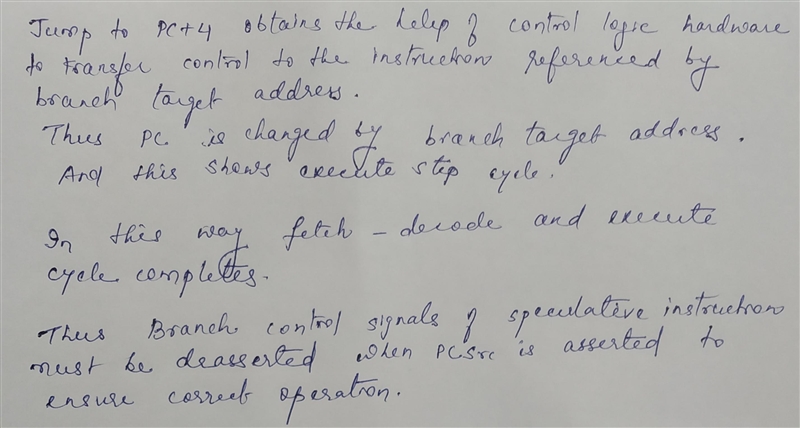 Jump to PC+4 obtains the help of control logic hardware
to transfer control to the instruction referenced by
branch target address.
Thus PC is changed by branch target address.
And this shows execute step cycle.
In this way fetch - decode and execute
cycle completes.
Thus Branch control signals of speculative instruction
must be deasserted when PCSrc is asserted to
ensure correct operation.